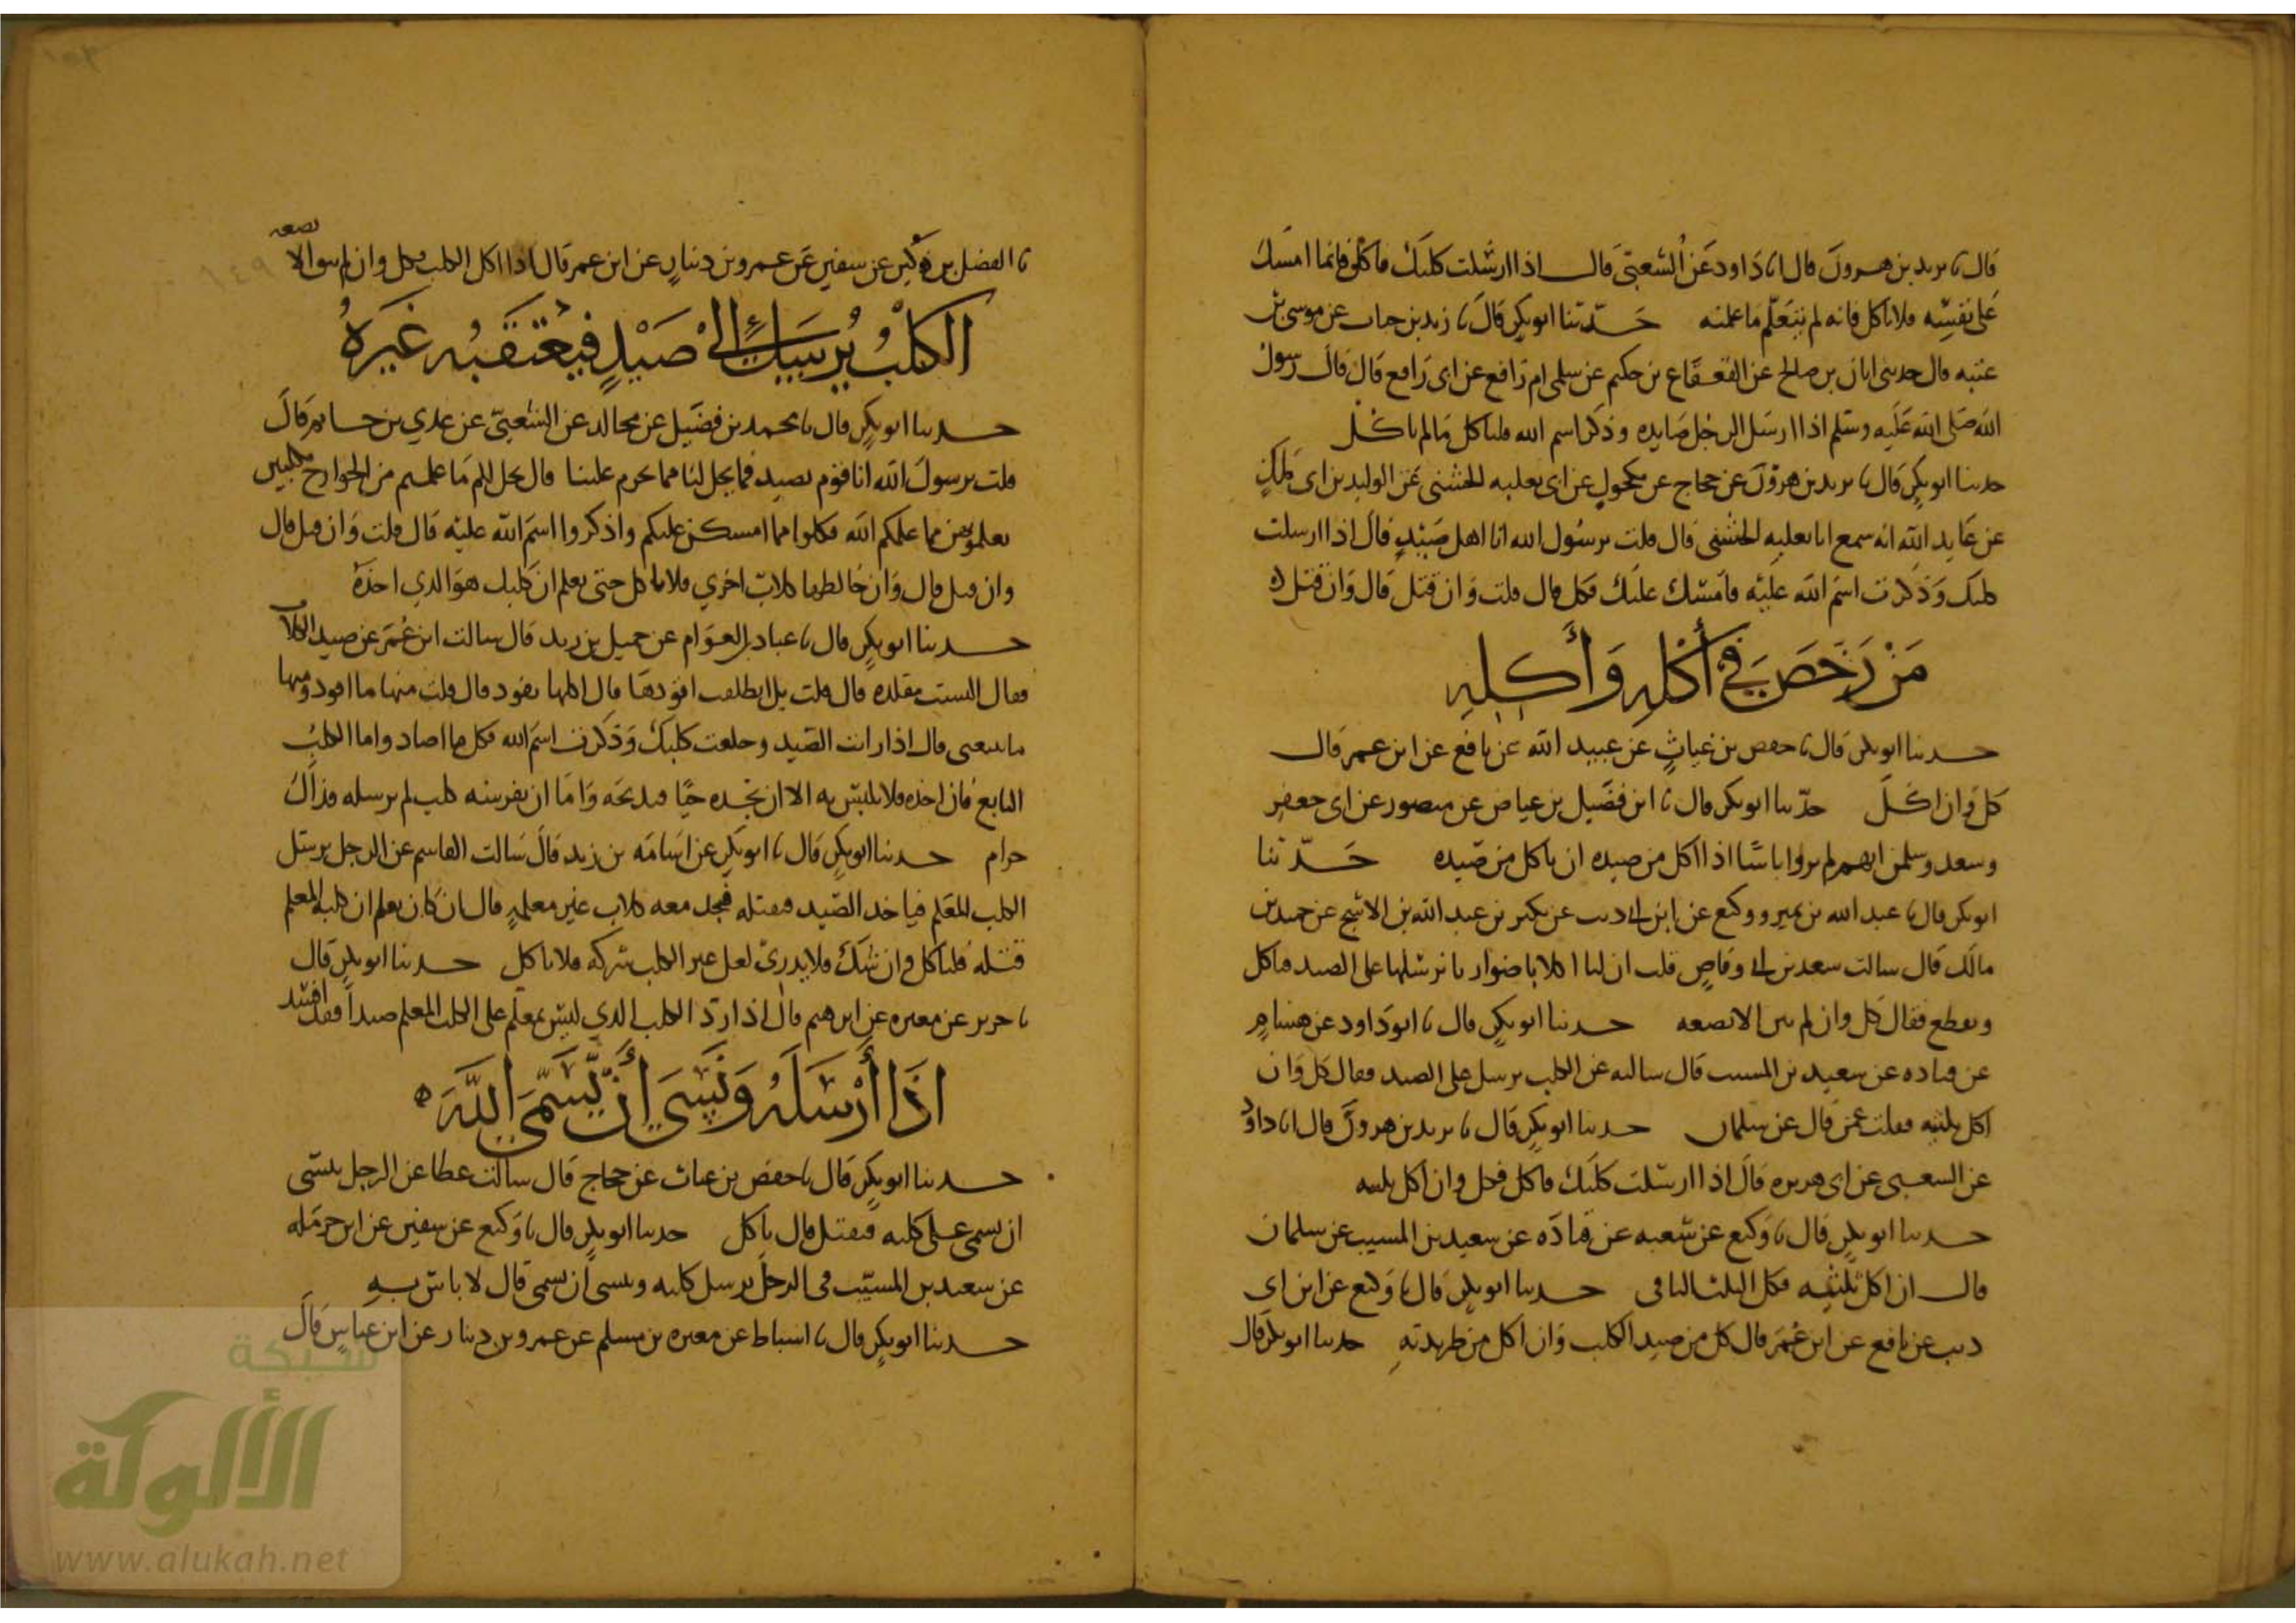 قال نا يزيد بن هرون قال انا داود عن الشعبي قال اذا ارسلت كلبك فاكل فانما امسك
على نفسه فلا تاكل فانه لم يتعلم ما علمته حدثنا ابو بكر قال نا زيد بن حباب عن موسى بن
عبيدة قال حدثني ابان بن صالح عن القعقاع بن حكيم عن سلمى ام رافع عن ابي رافع قال قال رسول
الله صلى الله عليه وسلم اذا ارسل الرجل صايده وذكر اسم الله فلياكل مالم ياكل
حدثنا ابو بكر قال نا يزيد بن هرون عن حجاج عن مكحول عن ابي ثعلبه الخشني عن الوليد بن ابي مالك
عن عايد الله انه سمع ابا ثعلبه الخشني قال قلت يرسول الله انا اهل صيد قال اذا ارسلت
كلبك وذكرت اسم الله عليه فامسك عليك فكل قال قلت وان قتل قال وان قتل
من رخص في أكله وأكله
حدثنا ابو بكر قال نا حفص بن غياث عن عبيد الله عن نافع عن ابن عمر قال
كل وان اكل حدثنا ابو بكر قال نا ابن فضيل بن عياض عن منصور عن ابي جعفر
وسعد وسلمن انهم لم يروا باسا اذا اكل من صيده ان ياكل من صيده حدثنا
ابو بكر قال نا عبد الله بن نمير ووكيع عن ابن ابي ديب عن بكير بن عبد الله بن الاشج عن حميد بن
مالك قال سالت سعد بن ابي وقاص قلت ان لنا اكلابا ضواريا نرسلها على الصيد فتاكل
وتقطع فقال كل وان لم يبق الا بضعه حدثنا ابو بكر قال نا ابو داود عن هشام
عن قتاده عن سعيد بن المسيب قال سالته عن الكلب يرسل على الصيد فقال كل وان
اكل ثلثيه فقلت عمن قال عن سلمان حدثنا ابو بكر قال نا يزيد بن هرون قال انا داود
عن الشعبي عن ابي هريره قال اذا ارسلت كلبك فاكل فكل وان اكل ثلثيه
حدثنا ابو بكر قال نا وكيع عن شعبه عن قتاده عن سعيد بن المسيب عن سلمان
قال ان اكل ثلثيه فكل الثلث الباقي حدثنا ابو بكر قال نا وكيع عن ابن ابي
ديب عن نافع عن ابن عمر قال كل من صيد الكلب وان اكل من طريدته حدثنا ابو بكر قال
نا الفضل بن دكين عن سفين عن عمرو بن دينار عن ابن عمر قال اذا اكل الكلب فكل وان لم يبق الا بضعه
الكلب يرسل الى صيد فيعتقبه غيره
حدثنا ابو بكر قال نا محمد بن فضيل عن مجالد عن الشعبي عن عدي بن حاتم قال
قلت يرسول الله انا قوم نصيد فما يحل لنا مما يحرم علينا قال يحل لكم ما علمتم من الجوارح مكلبين
تعلمونهن مما علمكم الله فكلوا مما امسكن عليكم واذكروا اسم الله عليه قال قلت وان قتل قال
وان قتل قال وان خالطها كلاب اخري فلا تاكل حتى تعلم ان كلبك هو الذي اخذه
حدثنا ابو بكر قال نا عباد بن العوام عن جميل بن زيد قال سالت ابن عمر عن صيد الكلاب
فقال اليست مقلده قال قلت بل انطلقت اقودها قال اكلها تقود قال قلت منها ما اقود ومنها
ما يتبعني قال اذا رايت الصيد وخلعت كلبك وذكرت اسم الله فكل ما اصاد واما الكلب
التابع فان اخذه فلا تلتبس به الا ان تجده حيا فتذبحه واما ان يفرسه كلب لم ترسله فذاك
حرام حدثنا ابو بكر قال نا ابو بكر عن اسامه بن زيد قال سالت القاسم عن الرجل يرسل
الكلب المعلم فياخذ الصيد فيقتله فيجد معه كلاب غير معلمه قال ان كان يعلم ان كلبه المعلم
قتله فلياكل وان شك فلا يدري لعل غير الكلب شركه فلا ياكل حدثنا ابو بكر قال
نا جرير عن مغيره عن ابرهيم قال اذا رد الكلب الذي ليس بمعلم على الكلب المعلم صيدا فقد افسد
اذا أرسله ونسي أن يسمي الله
حدثنا ابو بكر قال نا حفص بن غياث عن حجاج قال سالت عطا عن الرجل ينسى
ان يسمي على كلبه فيقتل قال ياكل حدثنا ابو بكر قال نا وكيع عن سفين عن ابن حرمله
عن سعيد بن المسيب في الرجل يرسل كلبه وينسى ان يسمي قال لا باس به
حدثنا ابو بكر قال نا اسباط عن مغيره بن مسلم عن عمرو بن دينار عن ابن عباس قال
شبكة
الألوكة
www.alukah.net